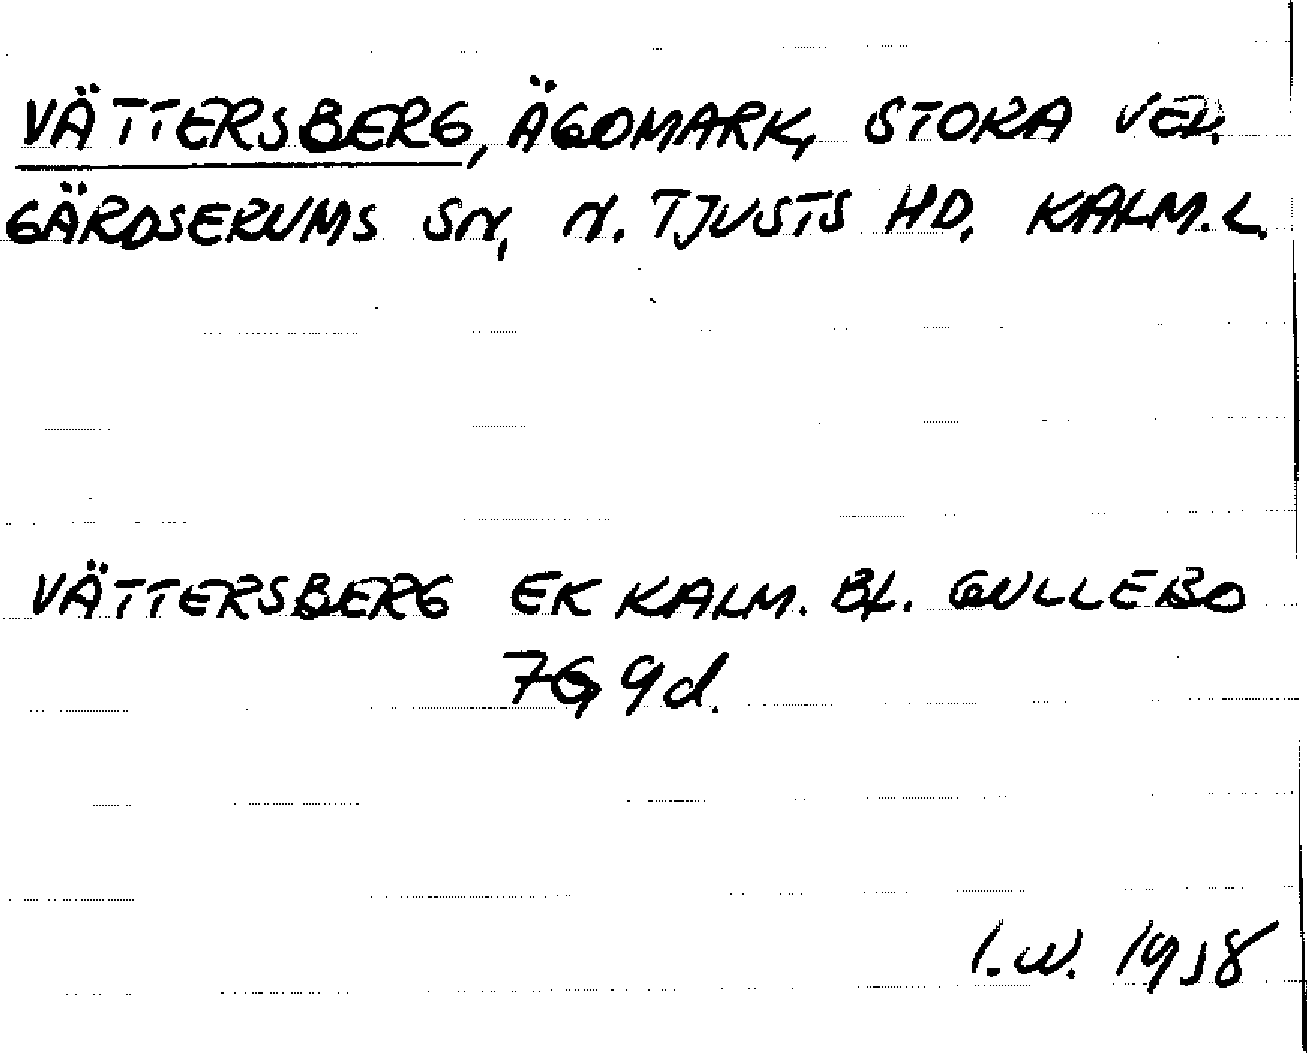 VÄTTERSBERG, ÄGOMARK, STORA VED,
GÄRDSERUMS SN, N. TJUSTS HD, KALM. L.
VÄTTERSBERG EK KALM. BL. GULLEBO
7G 9d.
I.W. 1958